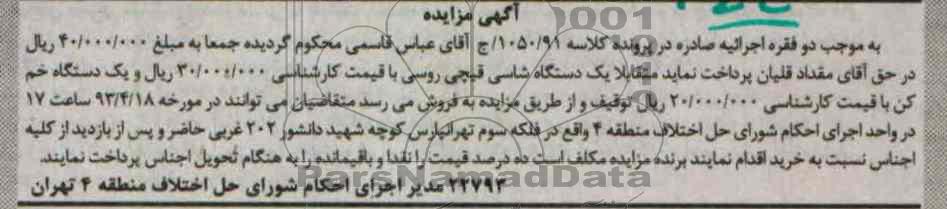 آگهی مزایده
به موجب دو فقره اجرائیه صادره در پرونده کلاسه ۱۰۵۰/۹۱/ ج آقای عباس قاسمی محکوم گردیده جمعا به مبلغ ۴۰/۰۰۰/۰۰۰ ریال
در حق آقای مقداد قلیان پرداخت نماید متقابلا یک دستگاه شاسی قیچی روسی با قیمت کارشناسی ۳۰/۰۰۰/۰۰۰ ریال و یک دستگاه خم
کن با قیمت کارشناسی ۲۰/۰۰۰/۰۰۰ ریال توقیف و از طریق مزایده به فروش می رسد متقاضیان می توانند در مورخه ۹۳/۴/۱۸ ساعت ۱۷
در واحد اجرای احکام شورای حل اختلاف منطقه ۴ واقع در فلکه سوم تهرانپارس کوچه شهید دانشور ۲۰۲ غربی حاضر و پس از بازدید از کلیه
اجناس نسبت به خرید اقدام نمایند برنده مزایده مکلف است ده درصد قیمت را نقدا و باقیمانده را به هنگام تحویل اجناس پرداخت نمایند.
۲۲۷۹۳ مدیر اجرای احکام شورای حل اختلاف منطقه ۴ تهران
ParsNamadData